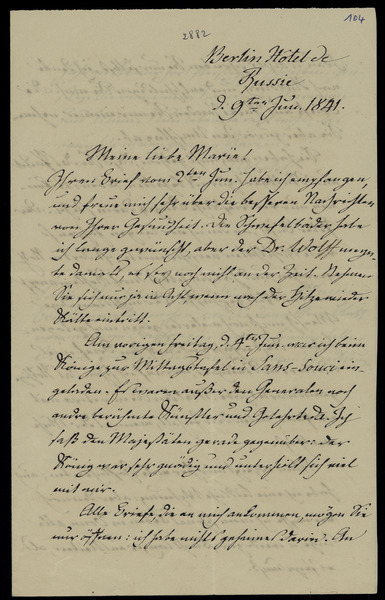 104
2882
Berlin Hotel de
Russie
d. 9ten Jun. 1841.
Meine liebe Marie!
Ihren Brief vom 2ten Jun. habe ich empfangen,
und freue mich sehr über die besseren Nachrichten
von Ihrer Gesundheit. Die Schwefelbäder habe
ich lange gewünscht, aber der Dr. Wolff meyn-
te damals, es sey noch nicht an der Zeit. Nehmen
Sie sich nur ja in Acht wenn nach der Hitze wieder
Kälte eintritt.
Am vorigen Freitag, d. 4ten Jun. war ich beim
Könige zur Mittagstafel in Sans-souci ein-
geladen. Es waren außer den Generalen noch
andre berühmte Künstler und Gelehrte da. Ich
saß den Majestäten gerade gegenüber: der
König war sehr gnädig und unterhielt sich viel
mit mir.
Alle Briefe, die an mich ankommen, mögen Sie
nur öffnen: ich habe nichts geheimes darin. An